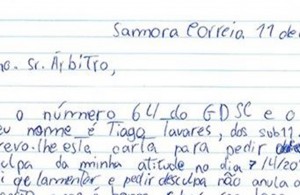 Samora Correia 11 de
mo. Sr. Árbitro,
o número 64 do GDSC e o
eu nome é Tiago Tavares, dos sub11.
revo-lhe esta carta para pedir
culpa da minha atitude no dia 7/4/20
lamentar e pedir desculpa não anula